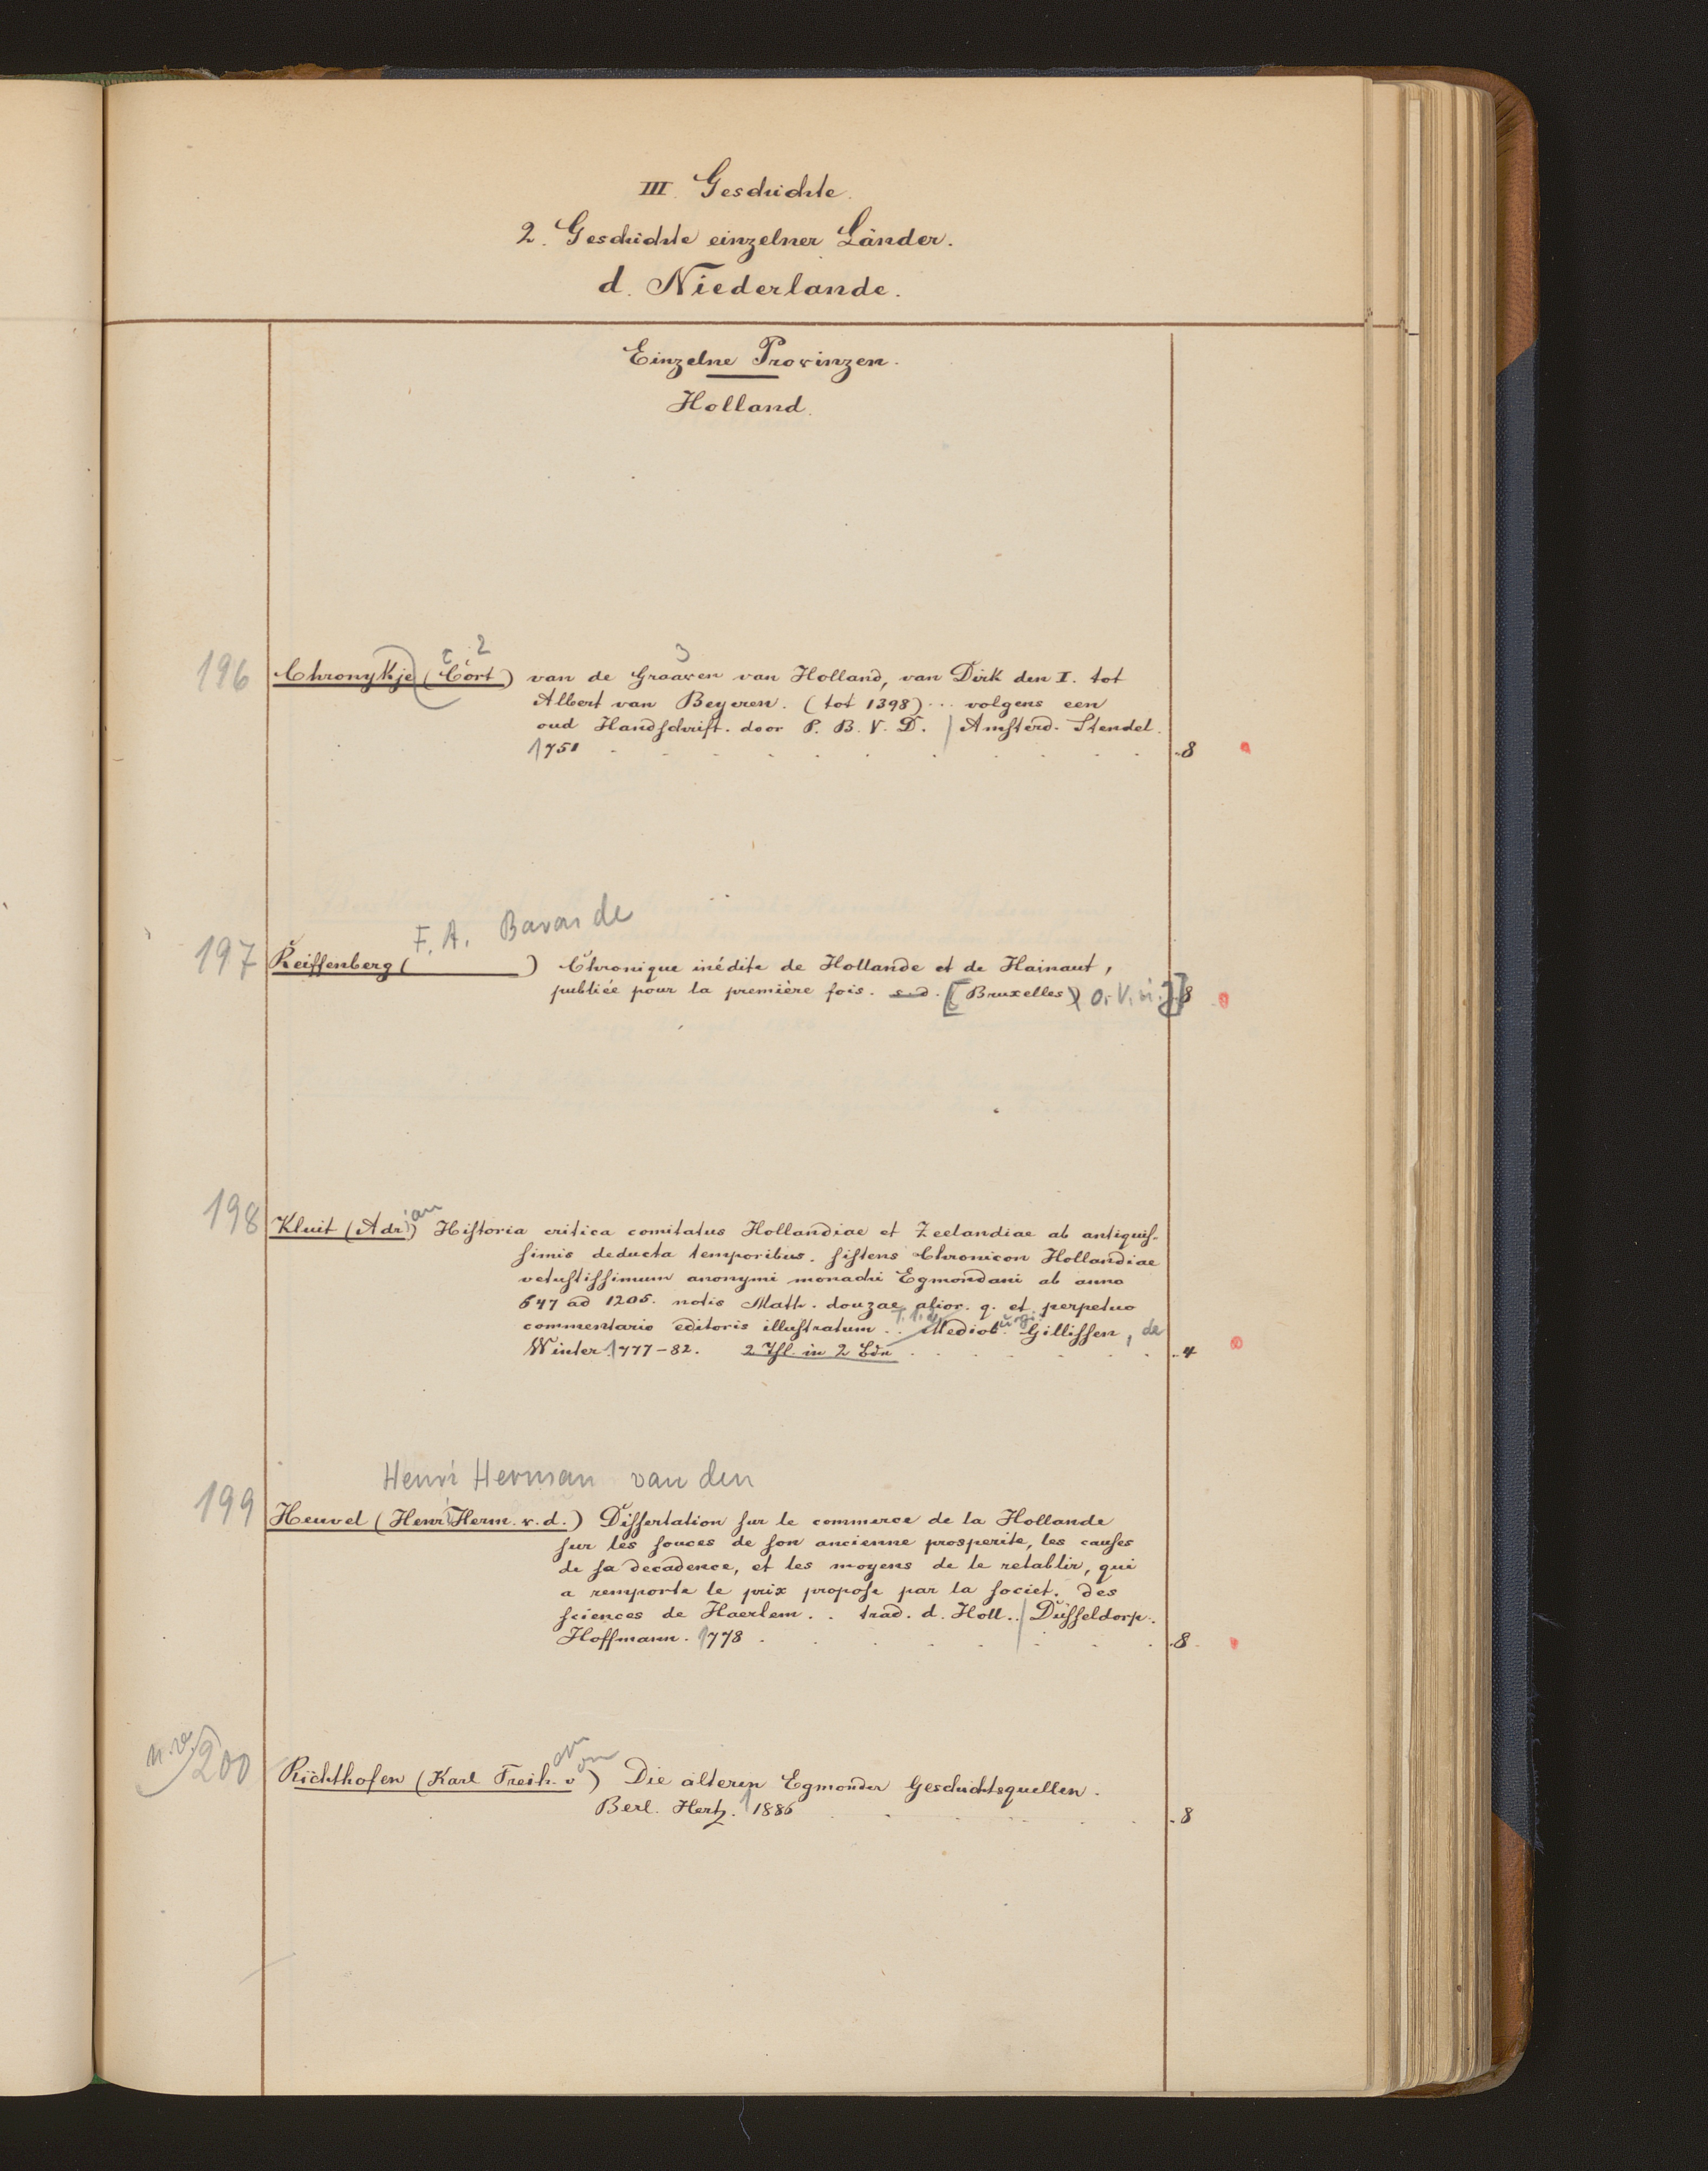 III. Geschichte.
2. Geschichte einzelner Länder.
d. Niederlande.
Einzelne Provinzen.
Holland.
2 3
196 Chronykje (Cort) van de Graaven van Holland, van Dirk den I. tot
Albert van Beyeren. (tot 1398) ... volgens een
oud Handschrift. door P. B. V. D. | Amsterd. Stendel.
1751 8
F. A. Baron de
197 Reiffenberg ( ) Chronique inédite de Hollande et de Hainaut,
publiée pour la première fois. s. d. [Bruxelles) 8
198 Kluit (Adrian) Historia critica comitatus Hollandiae et Zeelandiae ab antiquis-
simis deducta temporibus. sistens Chronicon Hollandiae
vetustissimum anonymi monachi Egmondani ab anno
647 ad 1205. notis Math. douzae alior. q. et perpetuo
commentario editoris illustratum .. Mediob. Gillissen, de
Winter 1777-82. 2 Thl. in 2 Bdn 4
Henri Herman van den
199 Heuvel (Henri Herm. v. d.) Dissertation sur le commerce de la Hollande
sur les souces de son ancienne prosperite, les causes
de sa decadence, et les moyens de le retablir, qui
a remporte le prix propose par la societ. des
sciences de Haerlem .. trad. d. Holl.. | Düsseldorp.
Hoffmann. 1778 8
on
200 Richthofen (Karl Freih. von) Die älteren Egmonder Geschichtsquellen.
Berl. Hertz. 1886 8